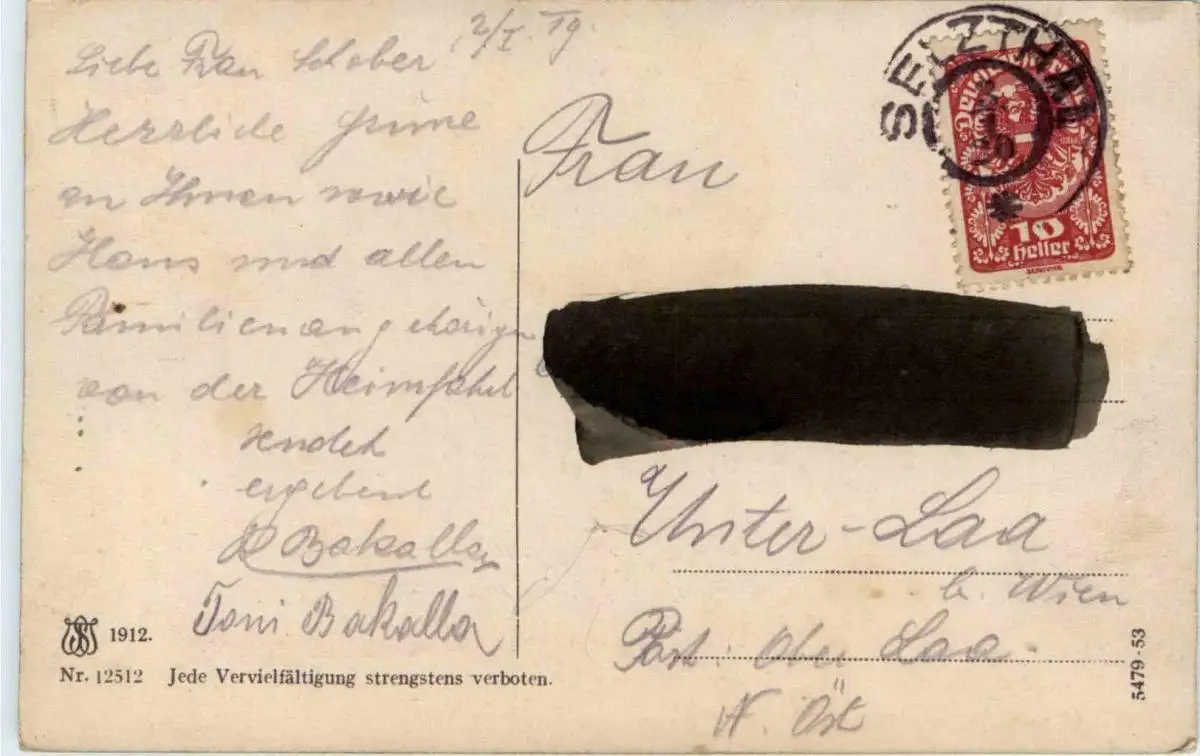 2/I. 19.
Liebe Frau Schober
Herzliche Grüsse
an Ihnen sowie
Hans und allen
Familienangehörigen
von der Heimfahrt
sendet
ergebenst
Bakalla
Toni Bakalla
1912.
Nr. 12512 Jede Vervielfältigung strengstens verboten.
SELZTHAL
20
10
Heller
Frau
Unter-Laa
b. Wien
Post: Ober Laa
N. Öst
5479-53